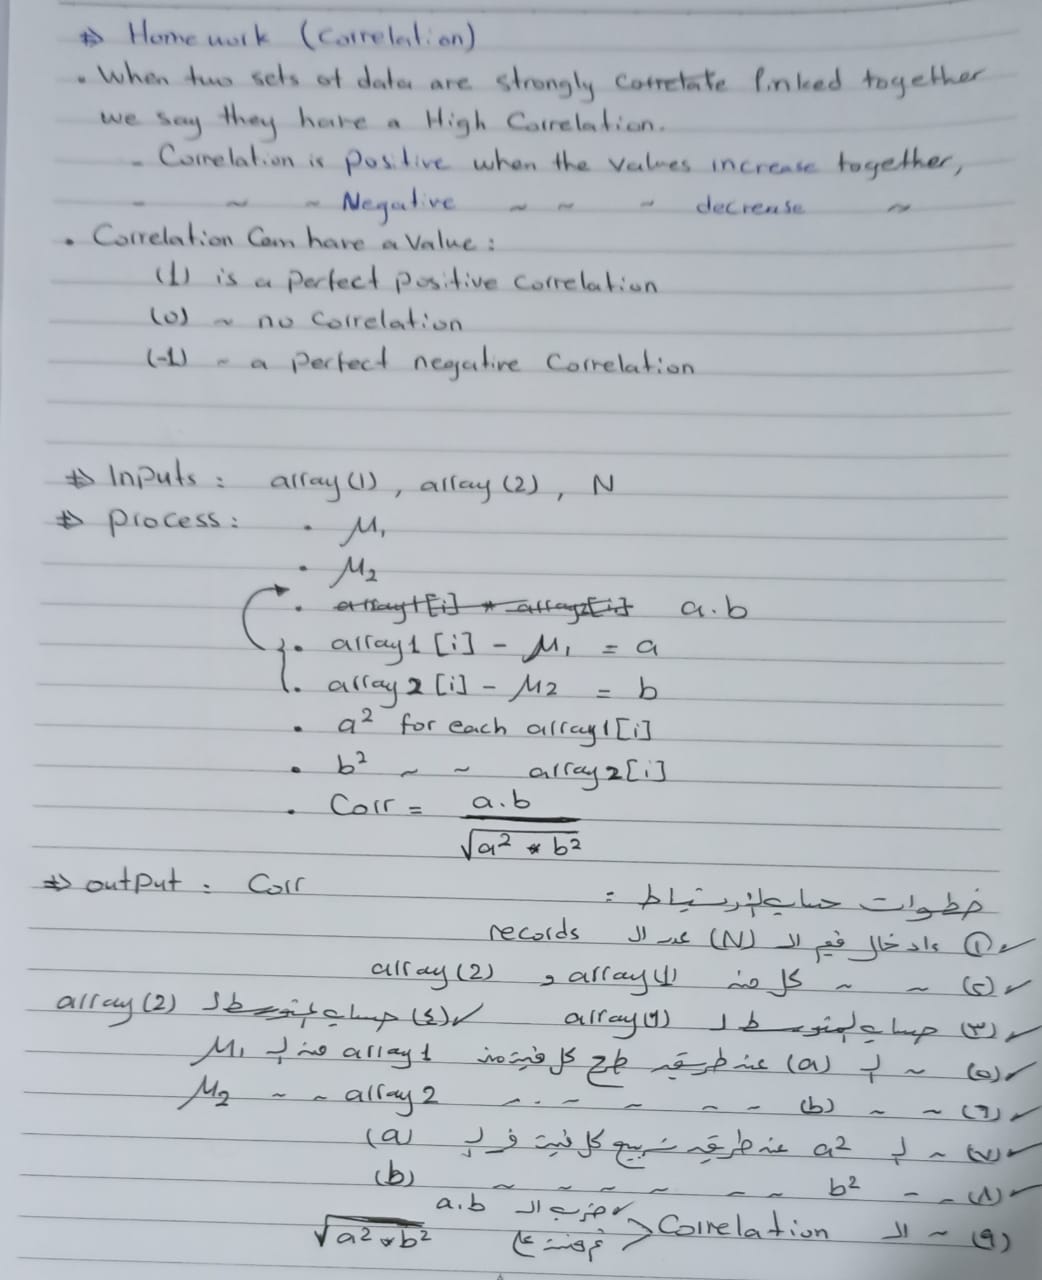 ⇒ Home work (Correlation)
. When two sets of data are strongly corretate linked together
we say they have a High Correlation.
- Correlation is Positive when the values increase together,
- ~ ~ Negative ~ ~ ~ decrease ~
. Correlation Can have a value :
(1) is a perfect positive correlation
(0) ~ no Correlation
(-1) ~ a perfect negative Correlation
⇒ Inputs : array(1), array(2), N
⇒ process : . μ₁
. μ₂
. array1[i] * array2[i] a.b
. array1[i] - μ₁ = a
. array2[i] - μ2 = b
. a² for each array1[i]
. b² ~ ~ array2[i]
. Corr = a.b / √a² * b²
⇒ output : Corr
خطوات حساب الارتباط :
(١) ادخال قيم الـ (N) عدد الـ records
(٢) ~ ~ كل من array(1) و array(2)
(٣) حساب المتوسط لـ array(1) (٤) حساب المتوسط لـ array(2)
(٥) ~ لـ (a) عن طريق طرح كل قيمة من array1 من لـ μ₁
(٦) ~ ~ (b) ~ ~ ~ ~ ~ array2 ~ ~ μ2
(٧) ~ لـ a² عن طريق تربيع كل قيمة في لـ (a)
(٨) ~ ~ b² ~ ~ ~ ~ ~ ~ (b)
(٩) ~ الـ Correlation < ضرب الـ a.b
√a² * b²